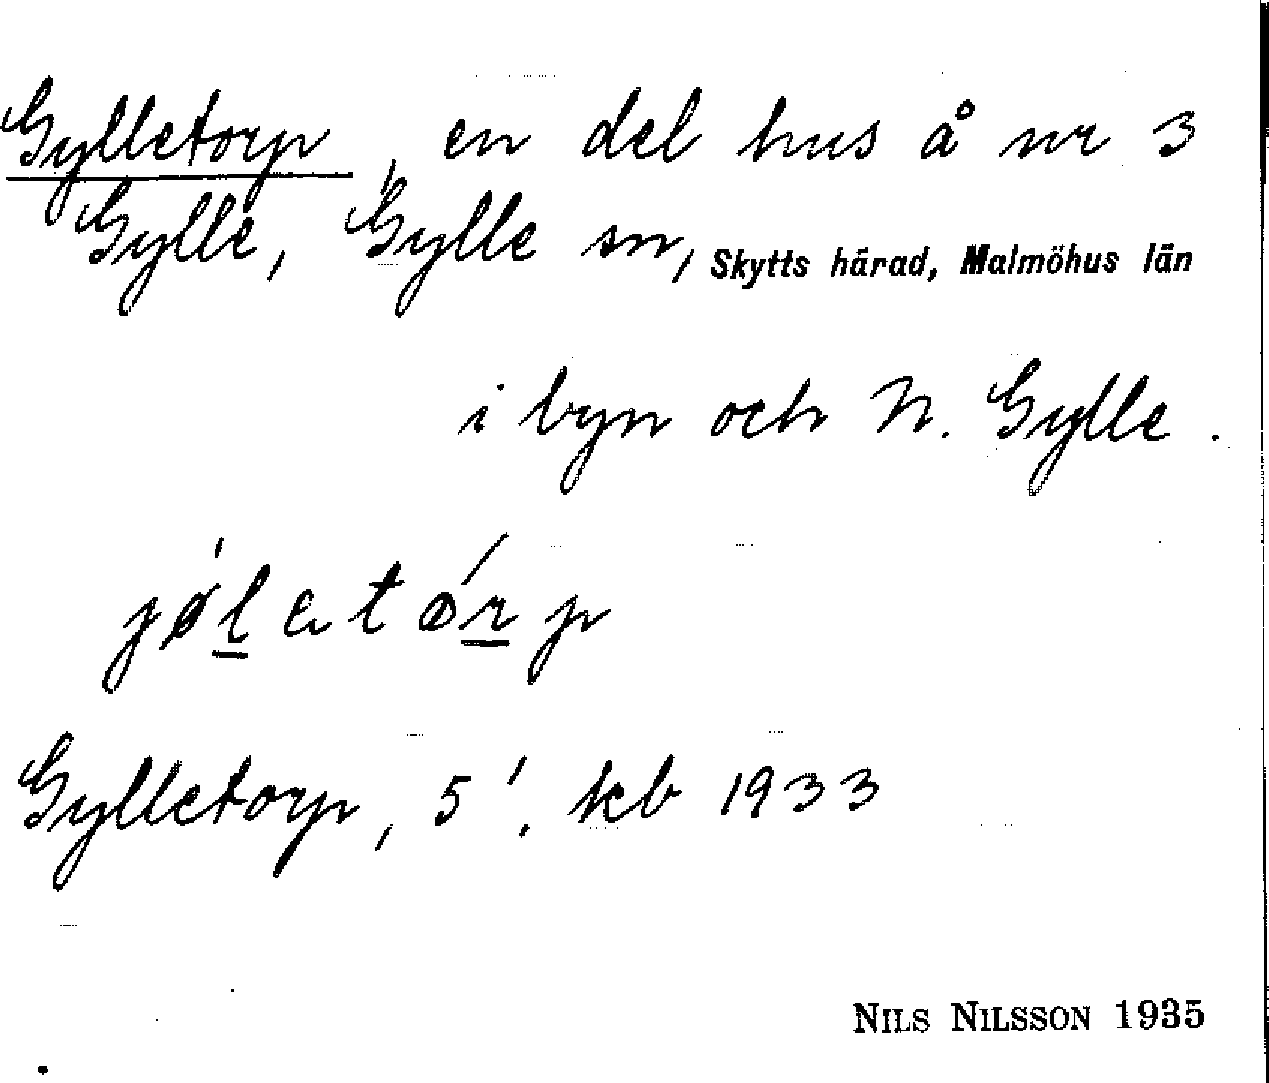 Gylletorp, en del hus å nr 3
Gylle, Gylle sn, Skytts härad, Malmöhus län
i byn och N. Gylle.
jǿlatǿrp
Gylletorp, 5!. kb 1933
NILS NILSSON 1935